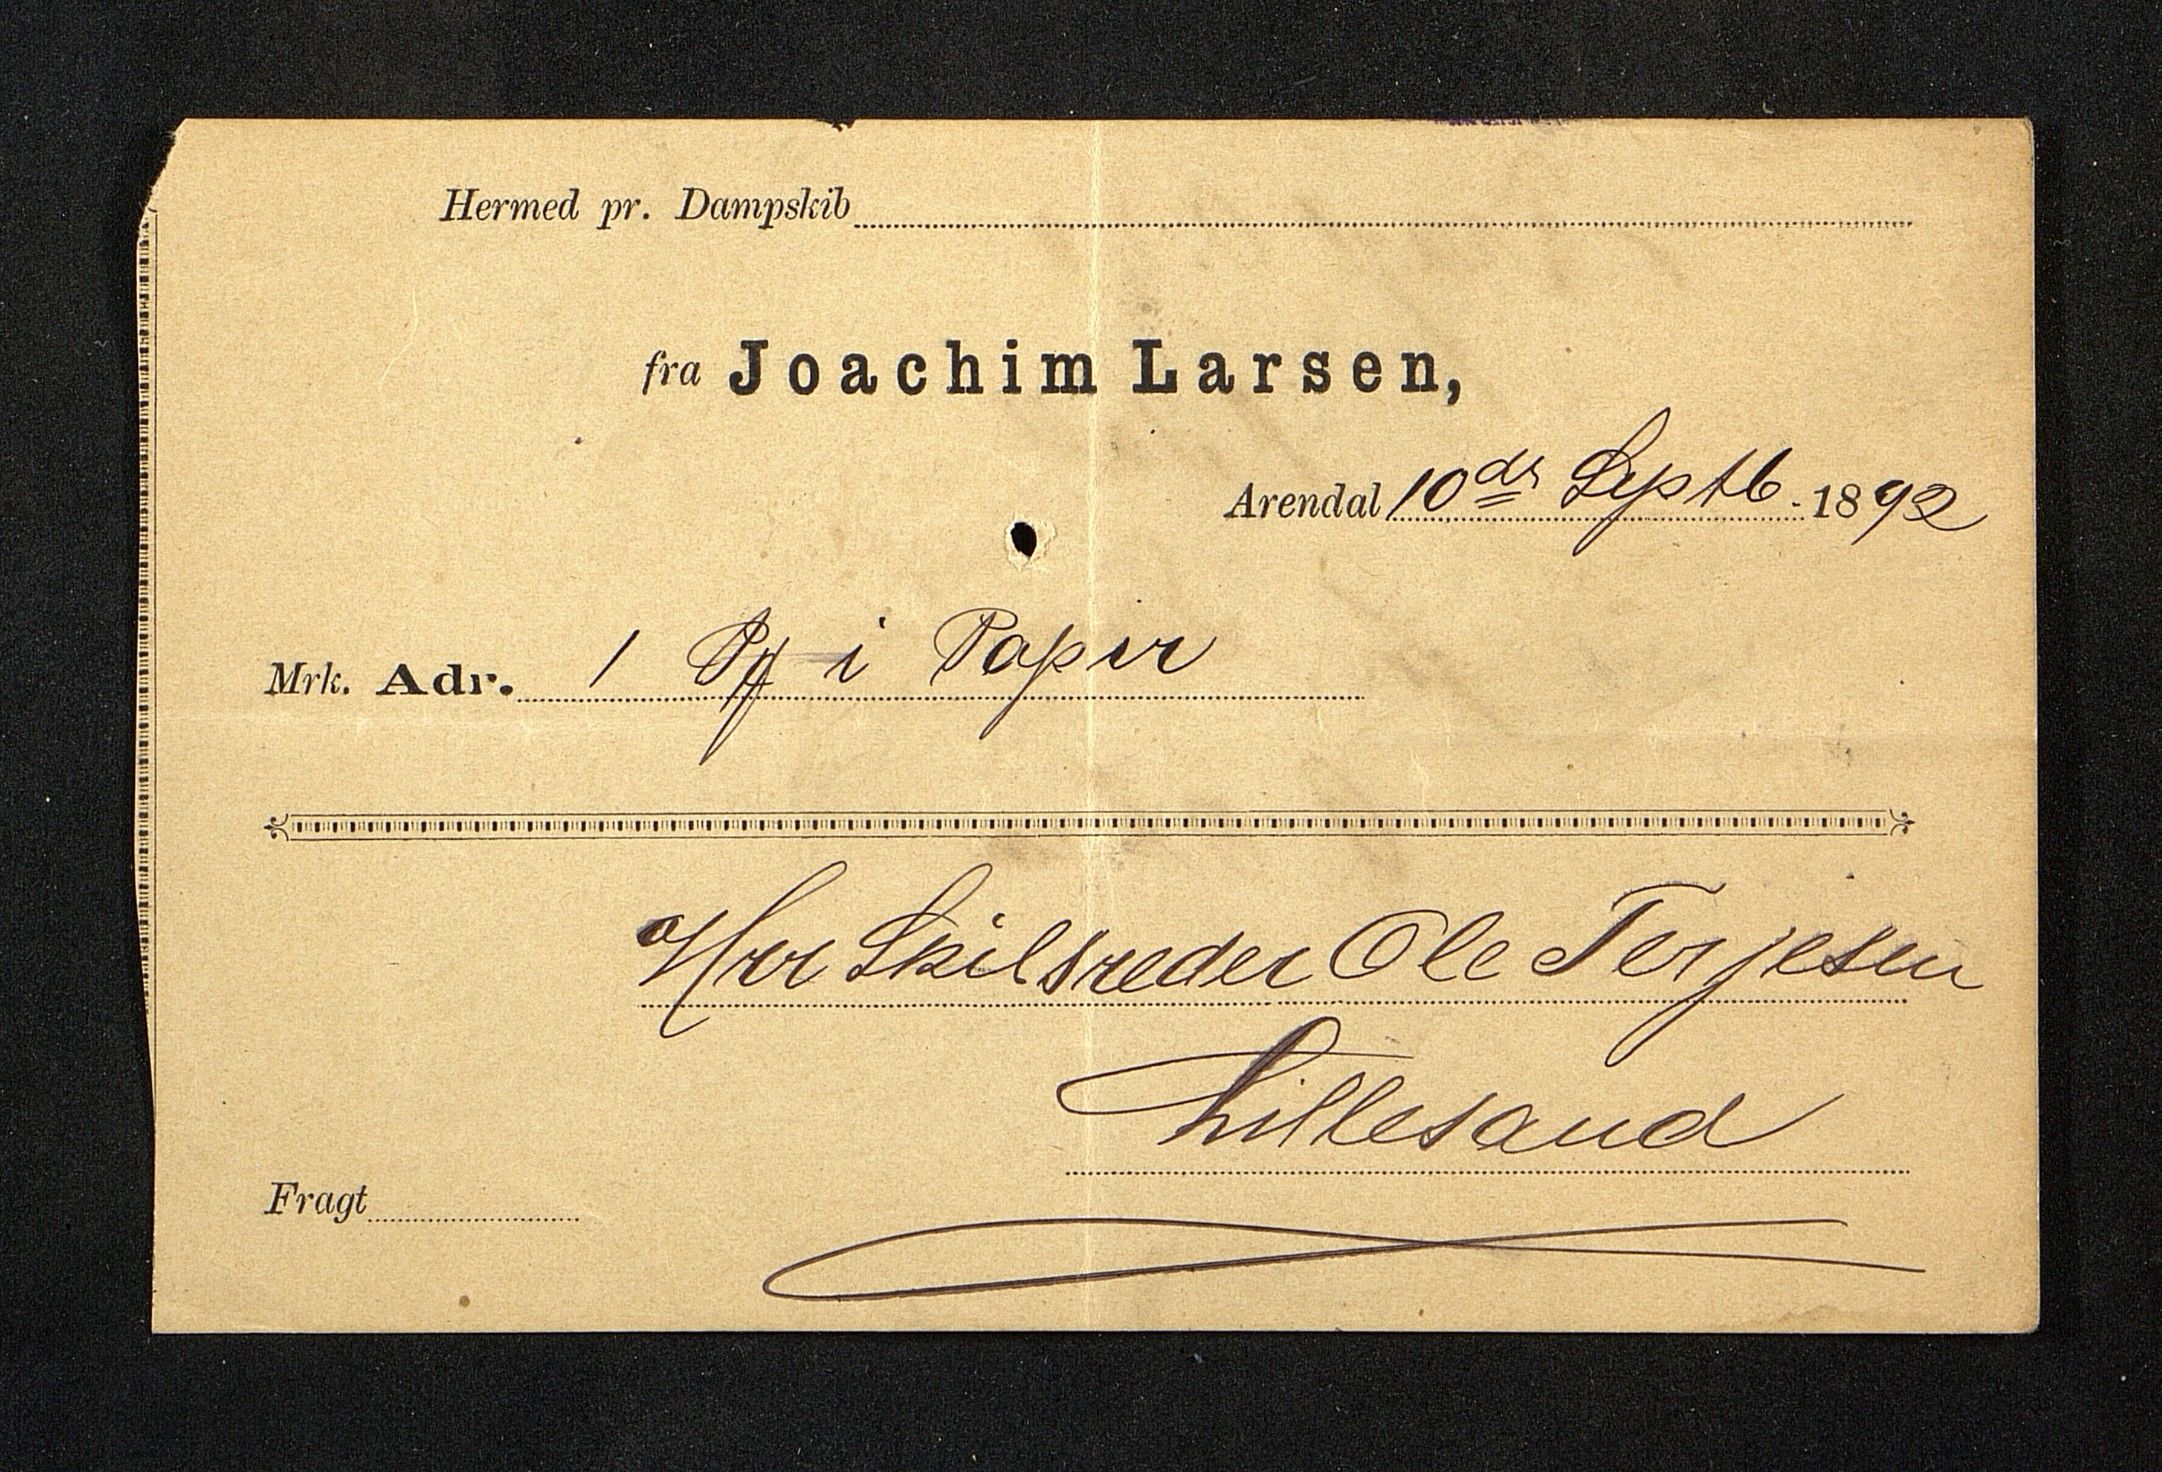 Hermed pr. Dampskib
fra Joachim Larsen,
Arendal 10de Septb. 1892
Mrk. Adr. 1 Pk i Papir
Herr Skibsreder Ole Terjesen
Lillesand
Fragt